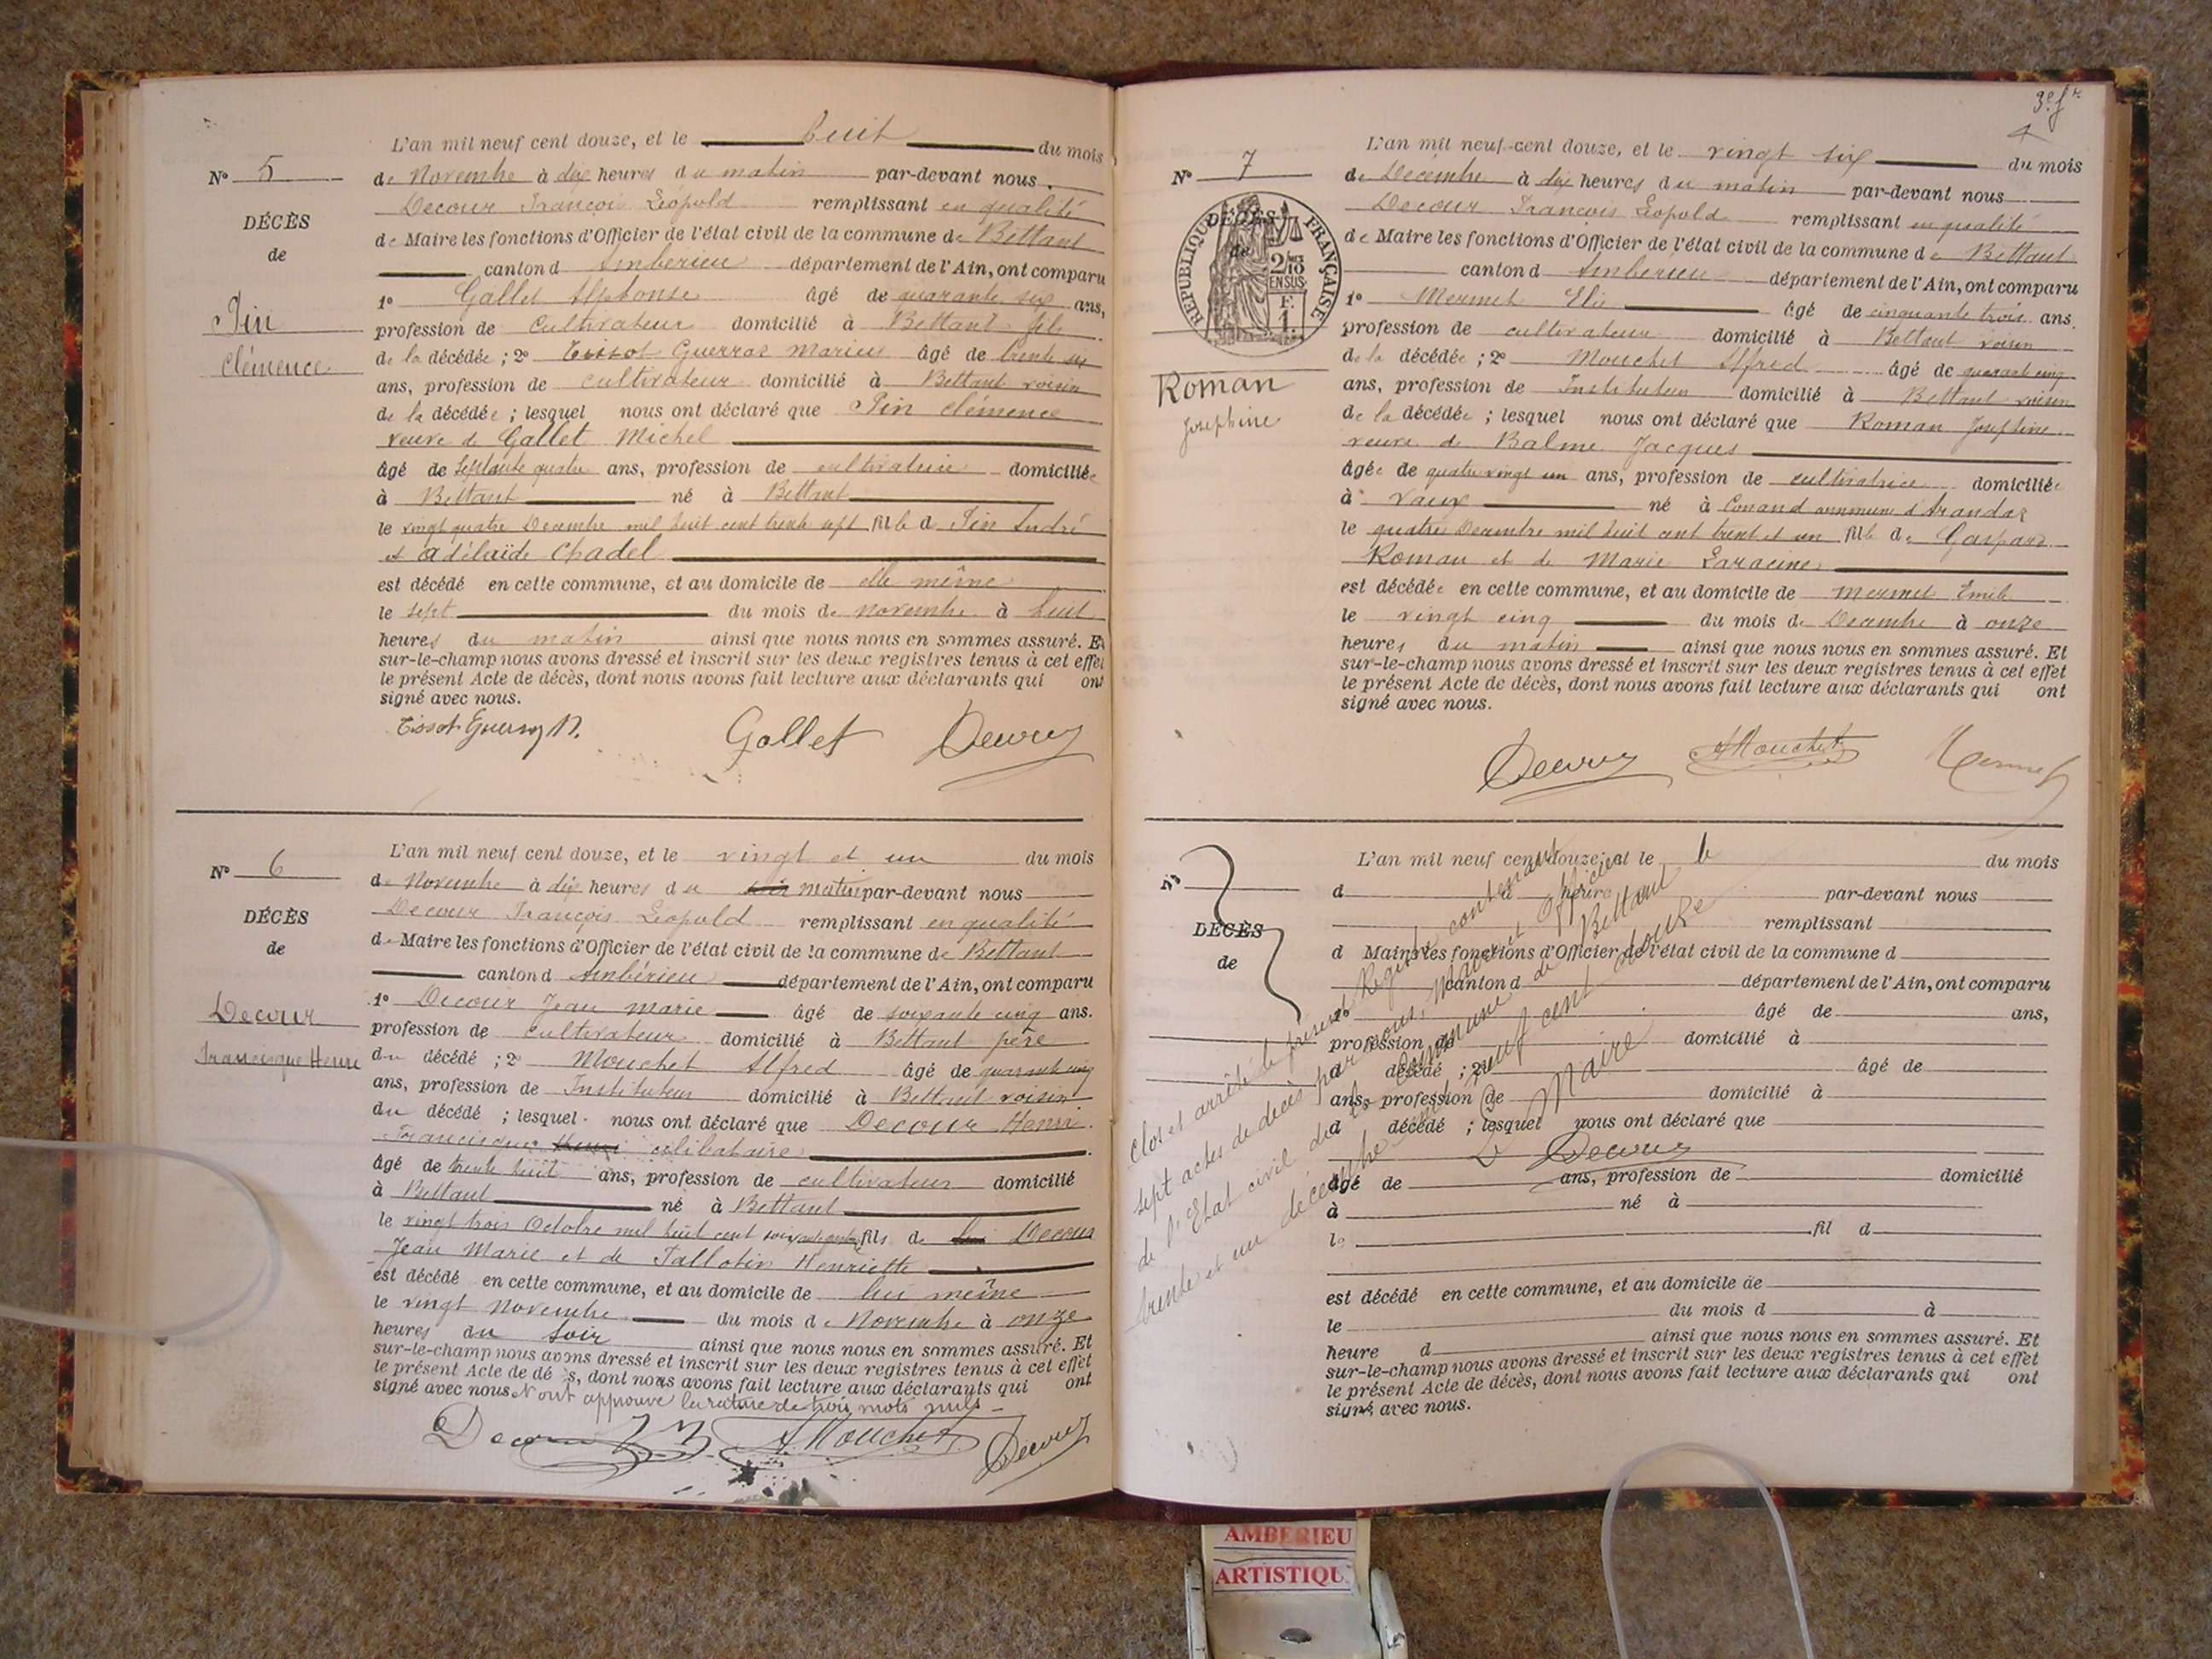 L'an mil neuf cent douze, et le huit du mois
N° 5
de Novembre à dix heures du matin par-devant nous
Decour François Léopold remplissant en qualité
DÉCÈS
de Maire les fonctions d'Officier de l'état civil de la commune de Bettant
de
canton d Ambérieu département de l'Ain, ont comparu
1° Gallet Alphonse âgé de quarante six ans,
Pin
profession de cultivateur domicilié à Bettant fils
Clémence
de la décédée ; 2° Tissot Guerraz Marius âgé de trente six
ans, profession de cultivateur domicilié à Bettant voisin
de la décédée ; lesquel nous ont déclaré que Pin Clémence
veuve de Gallet Michel
âgé de septante quatre ans, profession de cultivatrice domiciliée
à Bettant né à Bettant
le vingt quatre Decembre mil huit cent trente sept fille d Pin André
et Adélaïde Chadel
est décédé en cette commune, et au domicile de elle même
le sept du mois de novembre à huit
heures du matin ainsi que nous nous en sommes assuré. Et
sur-le-champ nous avons dressé et inscrit sur les deux registres tenus à cet effet
le présent Acte de décès, dont nous avons fait lecture aux déclarants qui ont
signé avec nous.
Tissot Guerraz M. Gallet Decour
L'an mil neuf cent douze, et le vingt et un du mois
N° 6
de Novembre à dix heures du soir matin par-devant nous
Decour François Léopold remplissant en qualité
DÉCÈS
de Maire les fonctions d'Officier de l'état civil de la commune de Bettant
de
canton d Ambérieu département de l'Ain, ont comparu
1° Decour Jean Marie âgé de soixante cinq ans.
Decour
profession de cultivateur domicilié à Bettant père
Francisque Henri
du décédé ; 2° Mouchet Alfred âgé de quarante cinq
ans, profession de Instituteur domicilié à Bettant voisin
du décédé ; lesquel nous ont déclaré que Decour Henri
Francisque Henri célibataire
âgé de trente huit ans, profession de cultivateur domicilié
à Bettant né à Bettant
le vingt trois Octobre mil huit cent soixante quatorze fils de lui Decour
Jean Marie et de Tallotin Henriette
est décédé en cette commune, et au domicile de lui même
le vingt novembre du mois de Novembre à onze
heures du soir ainsi que nous nous en sommes assuré. Et
sur-le-champ nous avons dressé et inscrit sur les deux registres tenus à cet effet
le présent Acte de décès, dont nous avons fait lecture aux déclarants qui ont
signé avec nous. N ont approuvé la rature de trois mots nuls
Decour J M. A Mouchet Decour
3e f
L'an mil neuf cent douze, et le vingt six du mois
N° 7
de Décembre à dix heures du matin par-devant nous
Decour François Léopold remplissant en qualité
DÉCÈS
RÉPUBLIQUE FRANÇAISE
2/10 EN SUS
F. 1.
de Maire les fonctions d'Officier de l'état civil de la commune de Bettant
de
canton d Ambérieu département de l'Ain, ont comparu
1° Mermet Elie âgé de cinquante trois ans.
profession de cultivateur domicilié à Bettant voisin
de la décédée ; 2° Mouchet Alfred âgé de quarante cinq
Roman
Josephine
ans, profession de Instituteur domicilié à Bettant voisin
de la décédée ; lesquel nous ont déclaré que Roman Josephine
veuve de Balme Jacques
âgée de quatre vingt un ans, profession de cultivatrice domiciliée
à Vaux né à Conand commune d'Arandas
le quatre Decembre mil huit cent trente et un fille de Gaspard
Roman et de Marie Saracine
est décédée en cette commune, et au domicile de Mermet Emile
le vingt cinq du mois de Decembre à onze
heures du matin ainsi que nous nous en sommes assuré. Et
sur-le-champ nous avons dressé et inscrit sur les deux registres tenus à cet effet
le présent Acte de décès, dont nous avons fait lecture aux déclarants qui ont
signé avec nous.
Decour A Mouchet Mermet
L'an mil neuf cent douze, et le du mois
N°
d à heure par-devant nous
remplissant
DÉCÈS
d Maire les fonctions d'Officier de l'état civil de la commune d
de
canton d département de l'Ain, ont comparu
1° âgé de ans,
profession de domicilié à
d décédé ; 2° âgé de
ans, profession de domicilié à
d décédé ; lesquel nous ont déclaré que
âgé de ans, profession de domicilié
à né à
le fil d
est décédé en cette commune, et au domicile de
le du mois d à
heure d ainsi que nous nous en sommes assuré. Et
sur-le-champ nous avons dressé et inscrit sur les deux registres tenus à cet effet
le présent Acte de décès, dont nous avons fait lecture aux déclarants qui ont
signé avec nous.
Clos et arrêté le présent Registre contenant
sept actes de décès par nous, Maire et Officier
de l'Etat civil de la commune de Bettant le
trente et un décembre mil neuf cent douze
Le Maire
Decour
AMBERIEU
ARTISTIQU